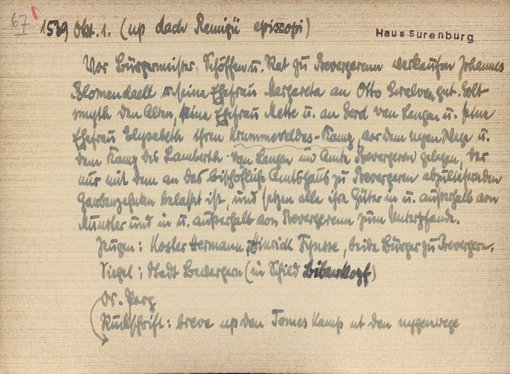 67
1539 Okt. 1. (up dach Remigii episcopi)
Haus Surenburg
Vor Bürgermeister, Schöffen u. Rat zu Bevergerenn verkaufen Johannes
Blomendaell u. seine Ehefrau Margareta an Otto gnt. Golt
smyth den Alten, seine Ehefrau Mette u. an Gerd van Lengen u. seine
Ehefrau Elysabeth ihren Krummeveldes-Kamp, vor dem nyen Wege u.
dem Kamp des Lamberth van Lengen im Amte Bevergeren gelegen, der
nur mit dem an das bischöfliche Amtshaus zu Bevergeren abzuliefernden
Garbenzehnten belastet ist, und setzen alle ihre Güter in u. außerhalb von
Munster und in u. außerhalb von Bevergerenn zum Unterpfande.
Zeugen: Koster Hermann, Hinrich Tynesse, beide Bürger zu Bevergern.
Siegel: Stadt Bevergern (in Schild Biberkopf)
Or. Perg.
Rückschrift: breve up den Tomes Kamp ut den nygenwege